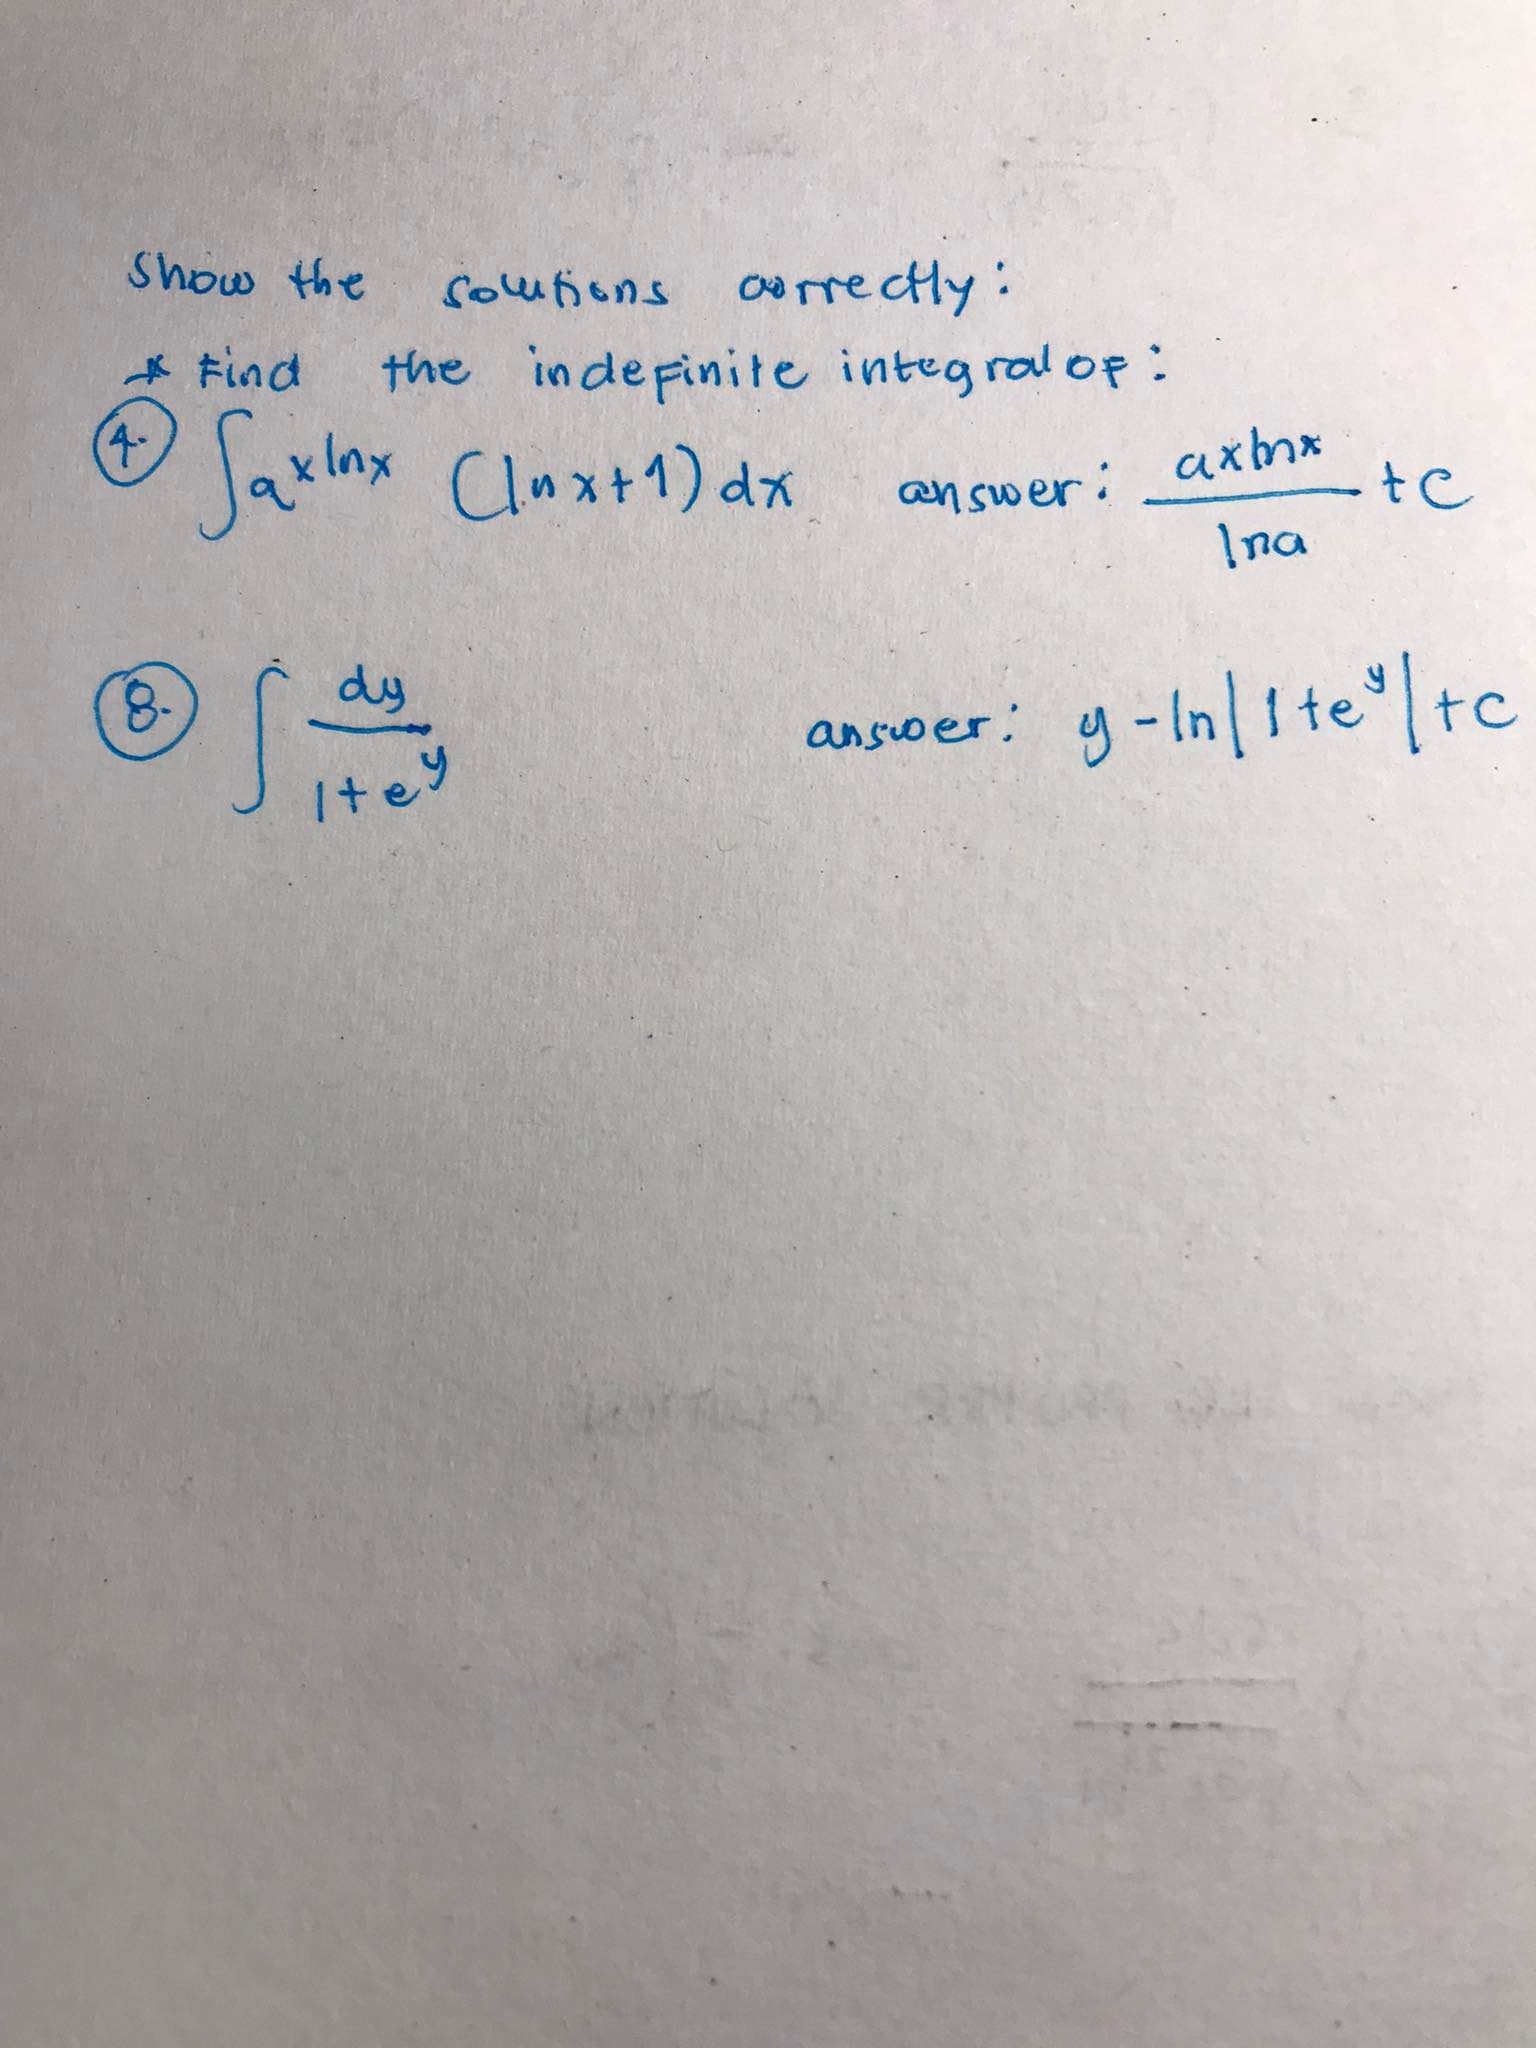 Show the solutions correctly:
* Find the indefinite integral of:
4. ∫a^(x ln x) (ln x + 1) dx answer: axlnx/lna + c
8. ∫ dy/(1+e^y) answer: y - ln|1+e^y| + c